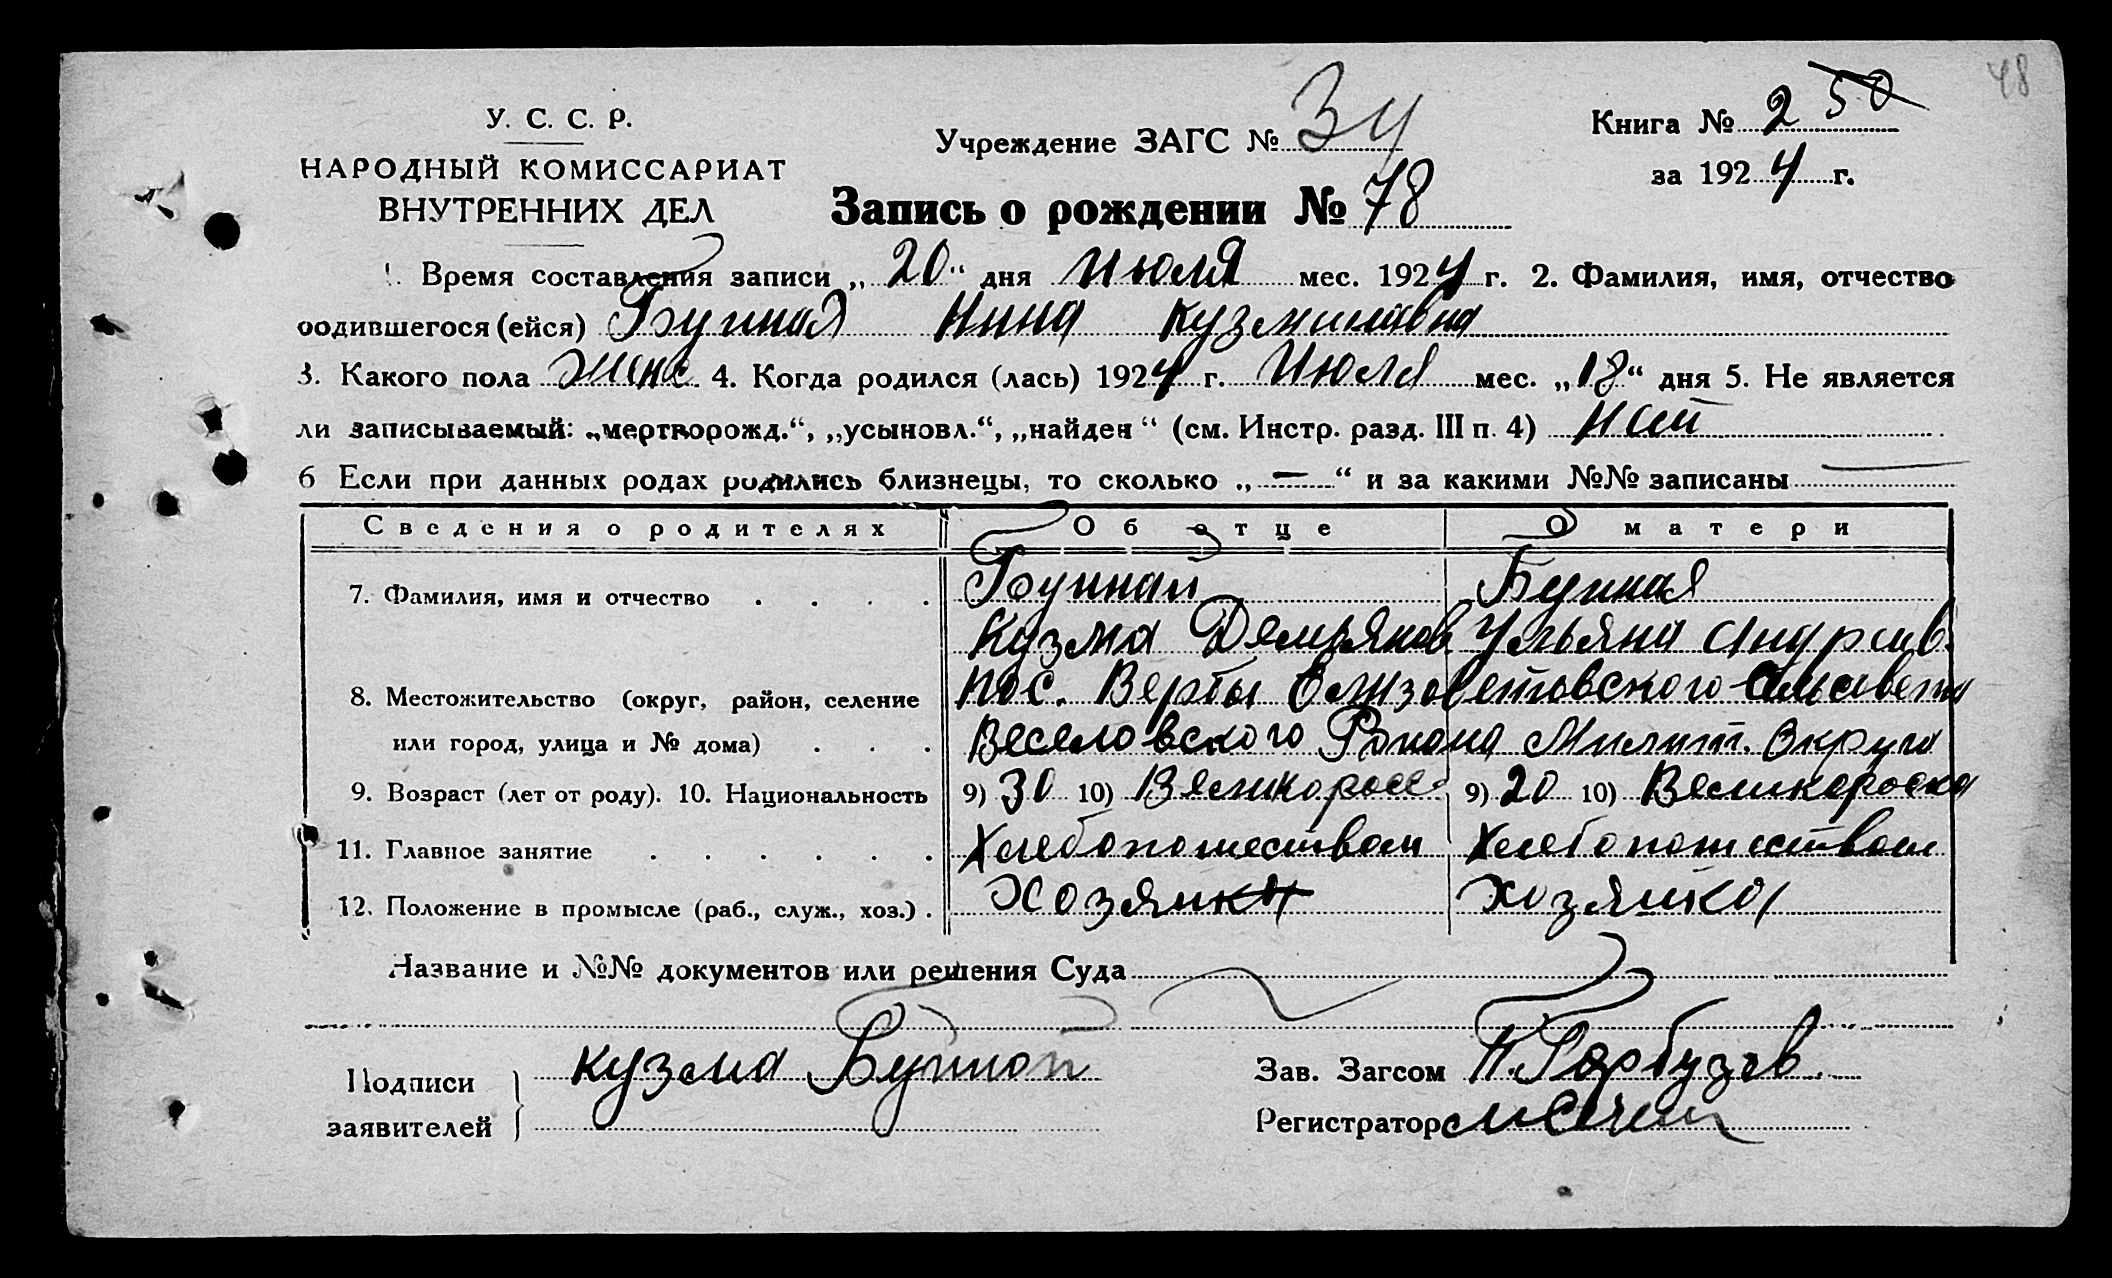 48
У. С. С. Р.
НАРОДНЫЙ КОМИССАРИАТ
ВНУТРЕННИХ ДЕЛ
Учреждение ЗАГС № 34
Книга № 2 50
за 1924 г.
Запись о рождении № 78
1. Время составления записи „20“ дня Июля мес. 1924 г. 2. Фамилия, имя, отчество
родившегося (ейся) Буйная Нина Кузминовна
3. Какого пола женс. 4. Когда родился (лась) 1924 г. Июля мес. „18“ дня 5. Не является
ли записываемый: „мертворожд.“, „усыновл.“, „найден“ (см. Инстр. разд. III п. 4) нет
6 Если при данных родах родились близнецы, то сколько „—“ и за какими №№ записаны —
Сведения о родителях Об отце О матери
7. Фамилия, имя и отчество Буйнай Буйная
Кузма Демьянов. Ульяна
8. Местожительство (округ, район, селение пос. Вербы Елизаветовского Сельсовета
или город, улица и № дома) Веселовского Району Мелит. Округа
9. Возраст (лет от роду). 10. Национальность 9) 30 10) Великоросс 9) 20 10) Великороска
11. Главное занятие Хлебопашеством Хлебопашеством
12. Положение в промысле (раб., служ., хоз.) Хозяин Хозяйка
Название и №№ документов или решения Суда
Подписи заявителей Кузма Буйной
Зав. Загсом П. Гарбузов
Регистратор